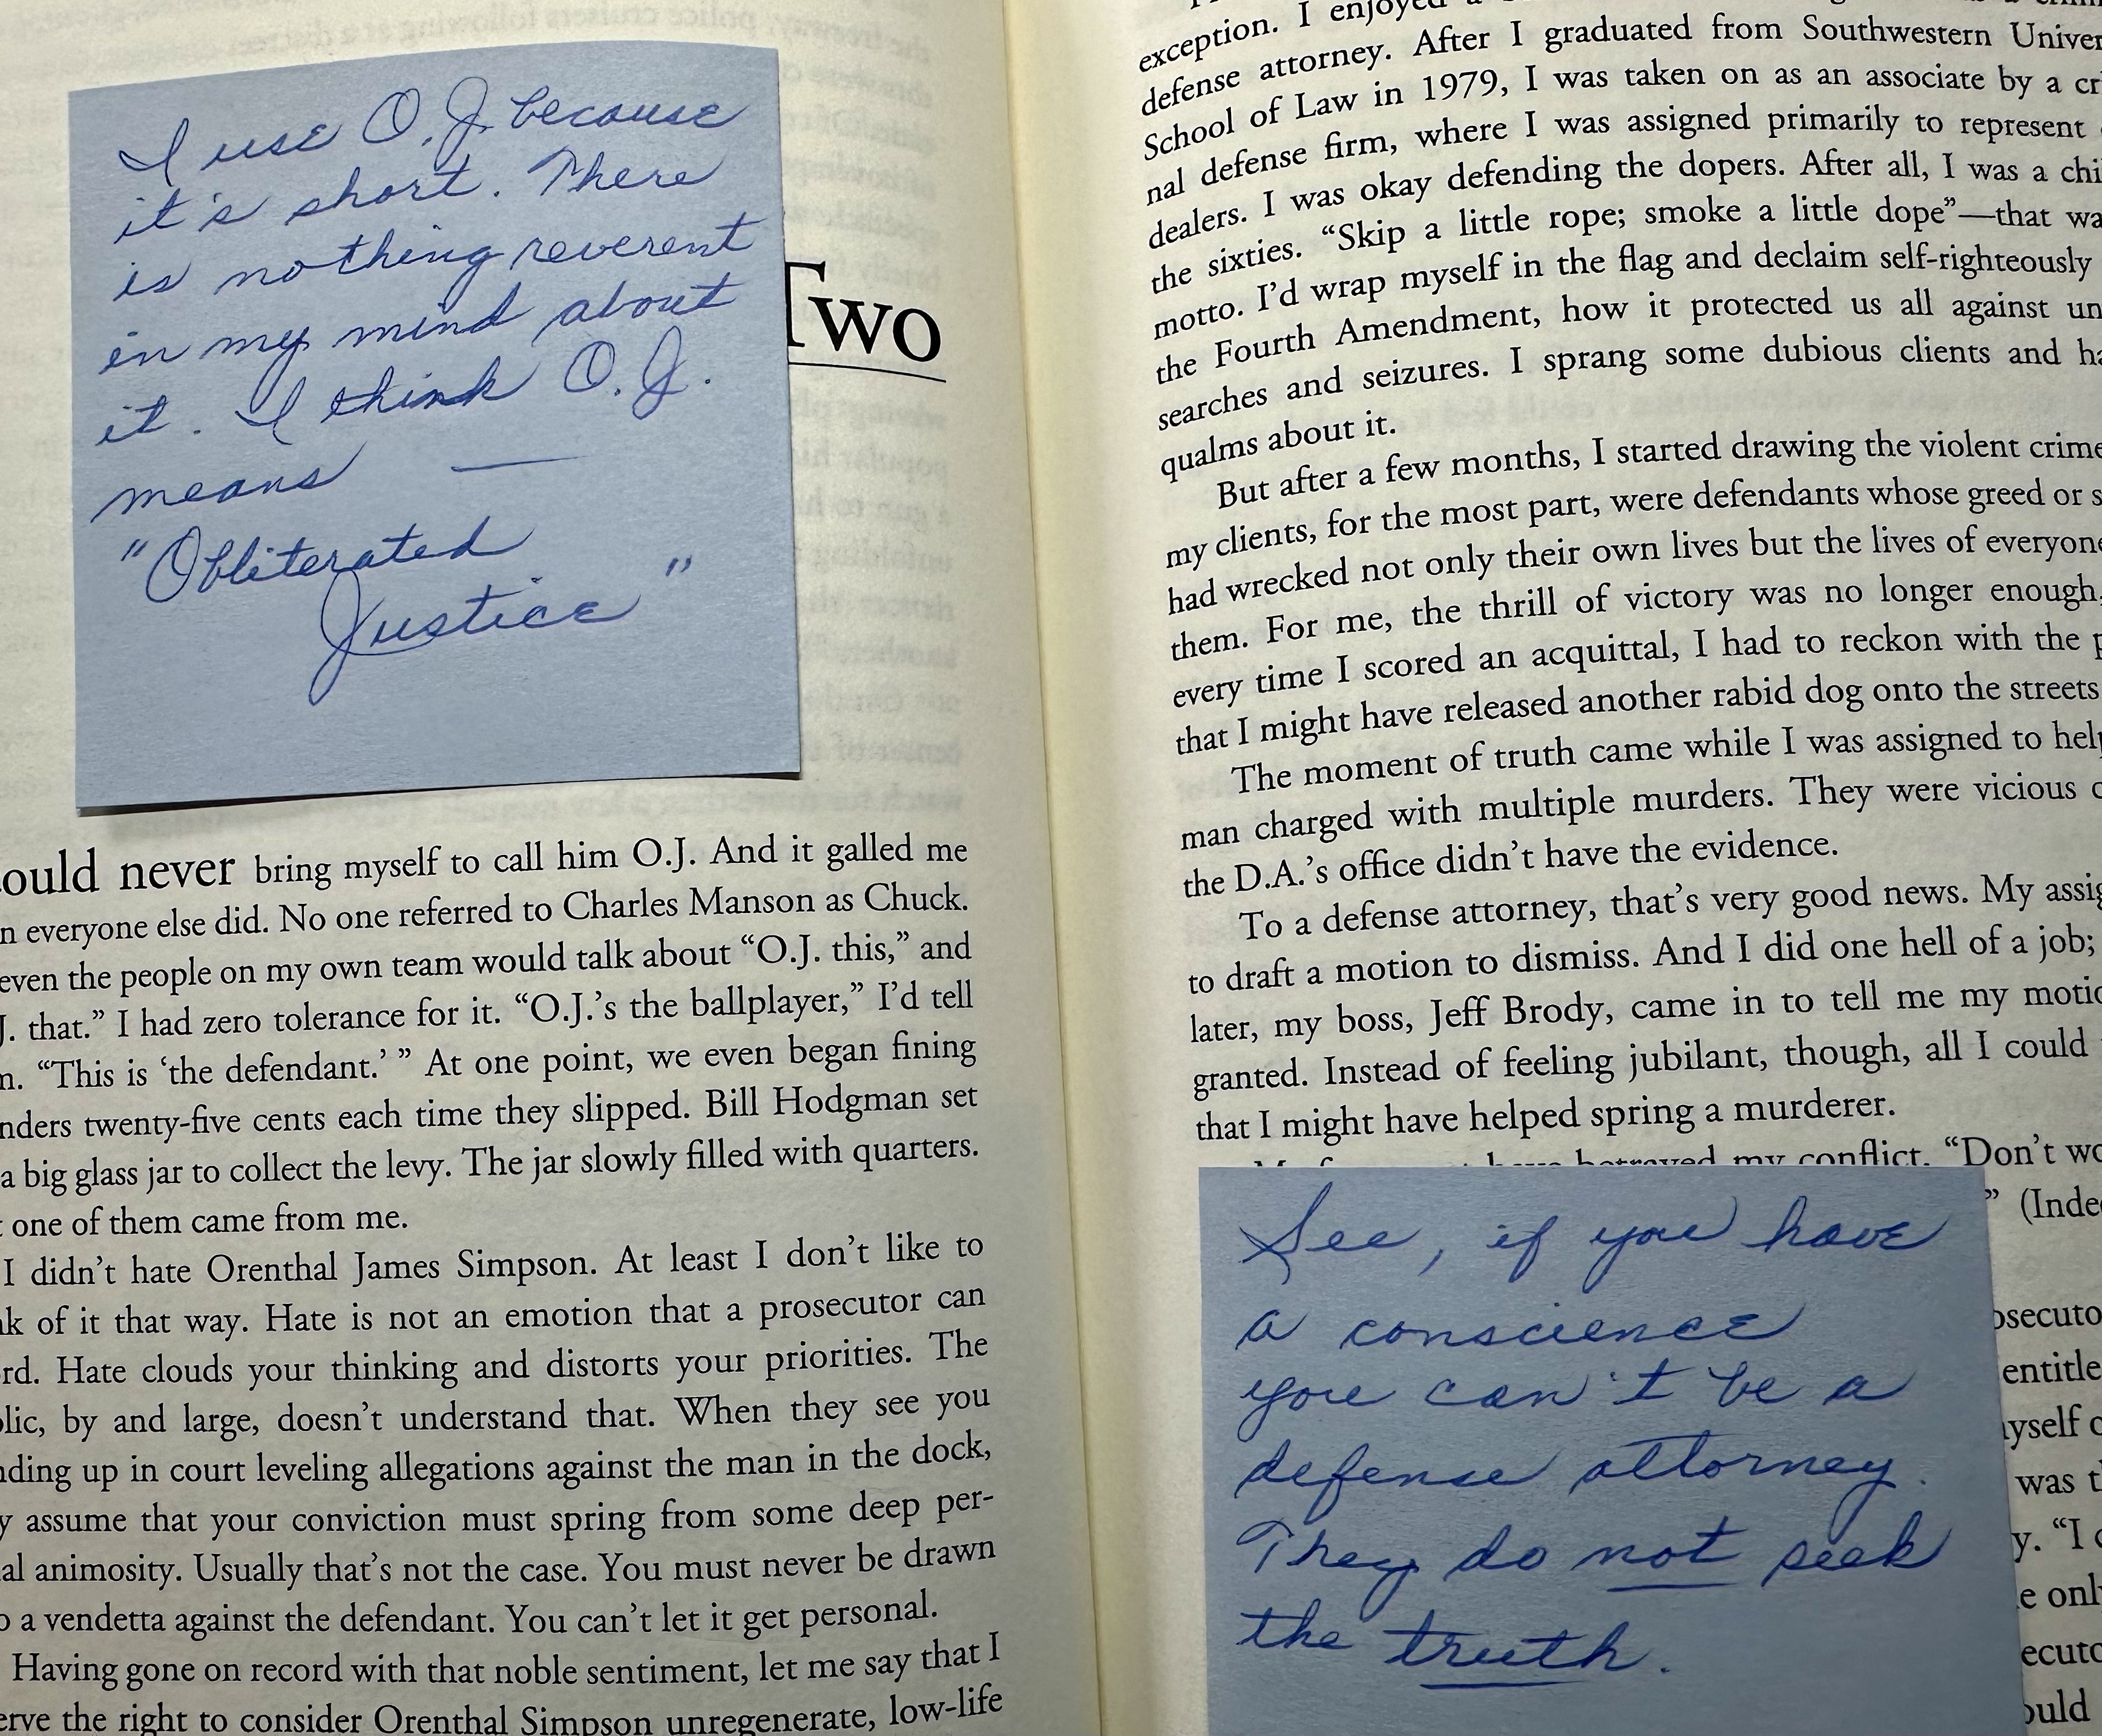 I use O.J. because
it's short. There
is nothing reverent
in my mind about
it. I think O.J.
means —
"Obliterated
Justice"
Two
never bring myself to call him O.J. And it galled me
everyone else did. No one referred to Charles Manson as Chuck.
even the people on my own team would talk about “O.J. this,” and
J. that.” I had zero tolerance for it. “O.J.’s the ballplayer,” I’d tell
“This is ‘the defendant.’ ” At one point, we even began fining
twenty-five cents each time they slipped. Bill Hodgman set
a big glass jar to collect the levy. The jar slowly filled with quarters.
one of them came from me.
I didn’t hate Orenthal James Simpson. At least I don’t like to
of it that way. Hate is not an emotion that a prosecutor can
Hate clouds your thinking and distorts your priorities. The
by and large, doesn’t understand that. When they see you
up in court leveling allegations against the man in the dock,
assume that your conviction must spring from some deep per-
animosity. Usually that’s not the case. You must never be drawn
a vendetta against the defendant. You can’t let it get personal.
Having gone on record with that noble sentiment, let me say that I
the right to consider Orenthal Simpson unregenerate, low-life
exception. I enjoyed
defense attorney. After I graduated from Southwestern
School of Law in 1979, I was taken on as an associate by a
nal defense firm, where I was assigned primarily to represent
dealers. I was okay defending the dopers. After all, I was a
the sixties. “Skip a little rope; smoke a little dope”—that
motto. I’d wrap myself in the flag and declaim self-righteously
the Fourth Amendment, how it protected us all against
searches and seizures. I sprang some dubious clients and
qualms about it.
But after a few months, I started drawing the violent
my clients, for the most part, were defendants whose greed or
had wrecked not only their own lives but the lives of everyone
them. For me, the thrill of victory was no longer enough,
every time I scored an acquittal, I had to reckon with the
that I might have released another rabid dog onto the streets
The moment of truth came while I was assigned to help
man charged with multiple murders. They were vicious
the D.A.’s office didn’t have the evidence.
To a defense attorney, that’s very good news. My
to draft a motion to dismiss. And I did one hell of a job;
later, my boss, Jeff Brody, came in to tell me my
granted. Instead of feeling jubilant, though, all I could
that I might have helped spring a murderer.
betrayed my conflict. “Don’t
See, if you have
a conscience
you can't be a
defense attorney.
They do not seek
the truth.
was
y. “I